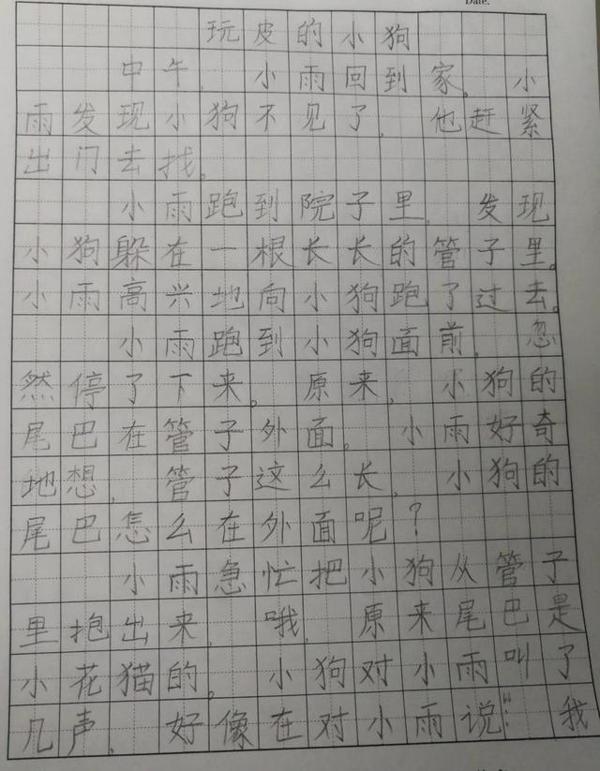 Date.
玩皮的小狗
中午，小雨回到家。小
雨发现小狗不见了，他赶紧
出门去找。
小雨跑到院子里，发现
小狗躲在一根长长的管子里。
小雨高兴地向小狗跑了过去。
小雨跑到小狗面前，忽
然停了下来。原来，小狗的
尾巴在管子外面。小雨好奇
地想，管子这么长，小狗的
尾巴怎么在外面呢？
小雨急忙把小狗从管子
里抱出来，哦，原来尾巴是
小花猫的。小狗对小雨叫了
几声，好像在对小雨说：“我